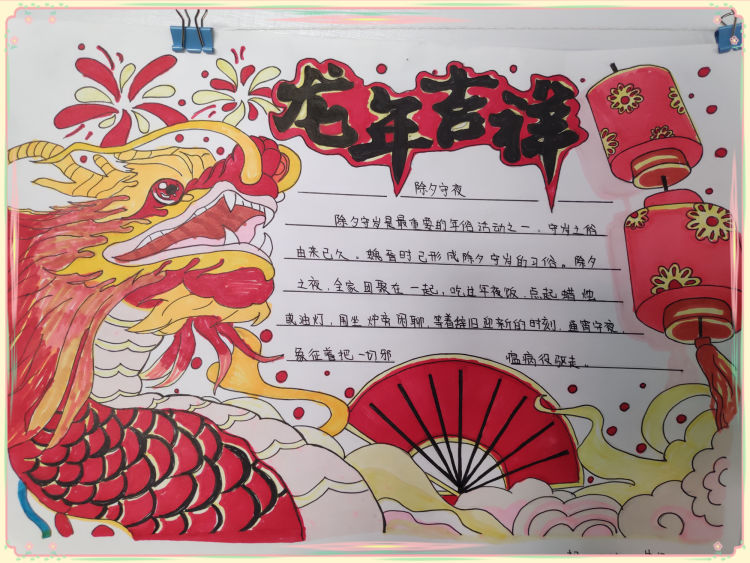 龙年吉祥
除夕守夜
除夕守岁是最重要的年俗活动之一，守岁之俗
由来已久。魏晋时已形成除夕守岁的习俗。除夕
之夜，全家团聚在一起，吃过年夜饭，点起蜡烛
或油灯，围坐炉旁闲聊，等着辞旧迎新的时刻，通宵守夜，
象征着把一切邪 瘟病疫驱走。